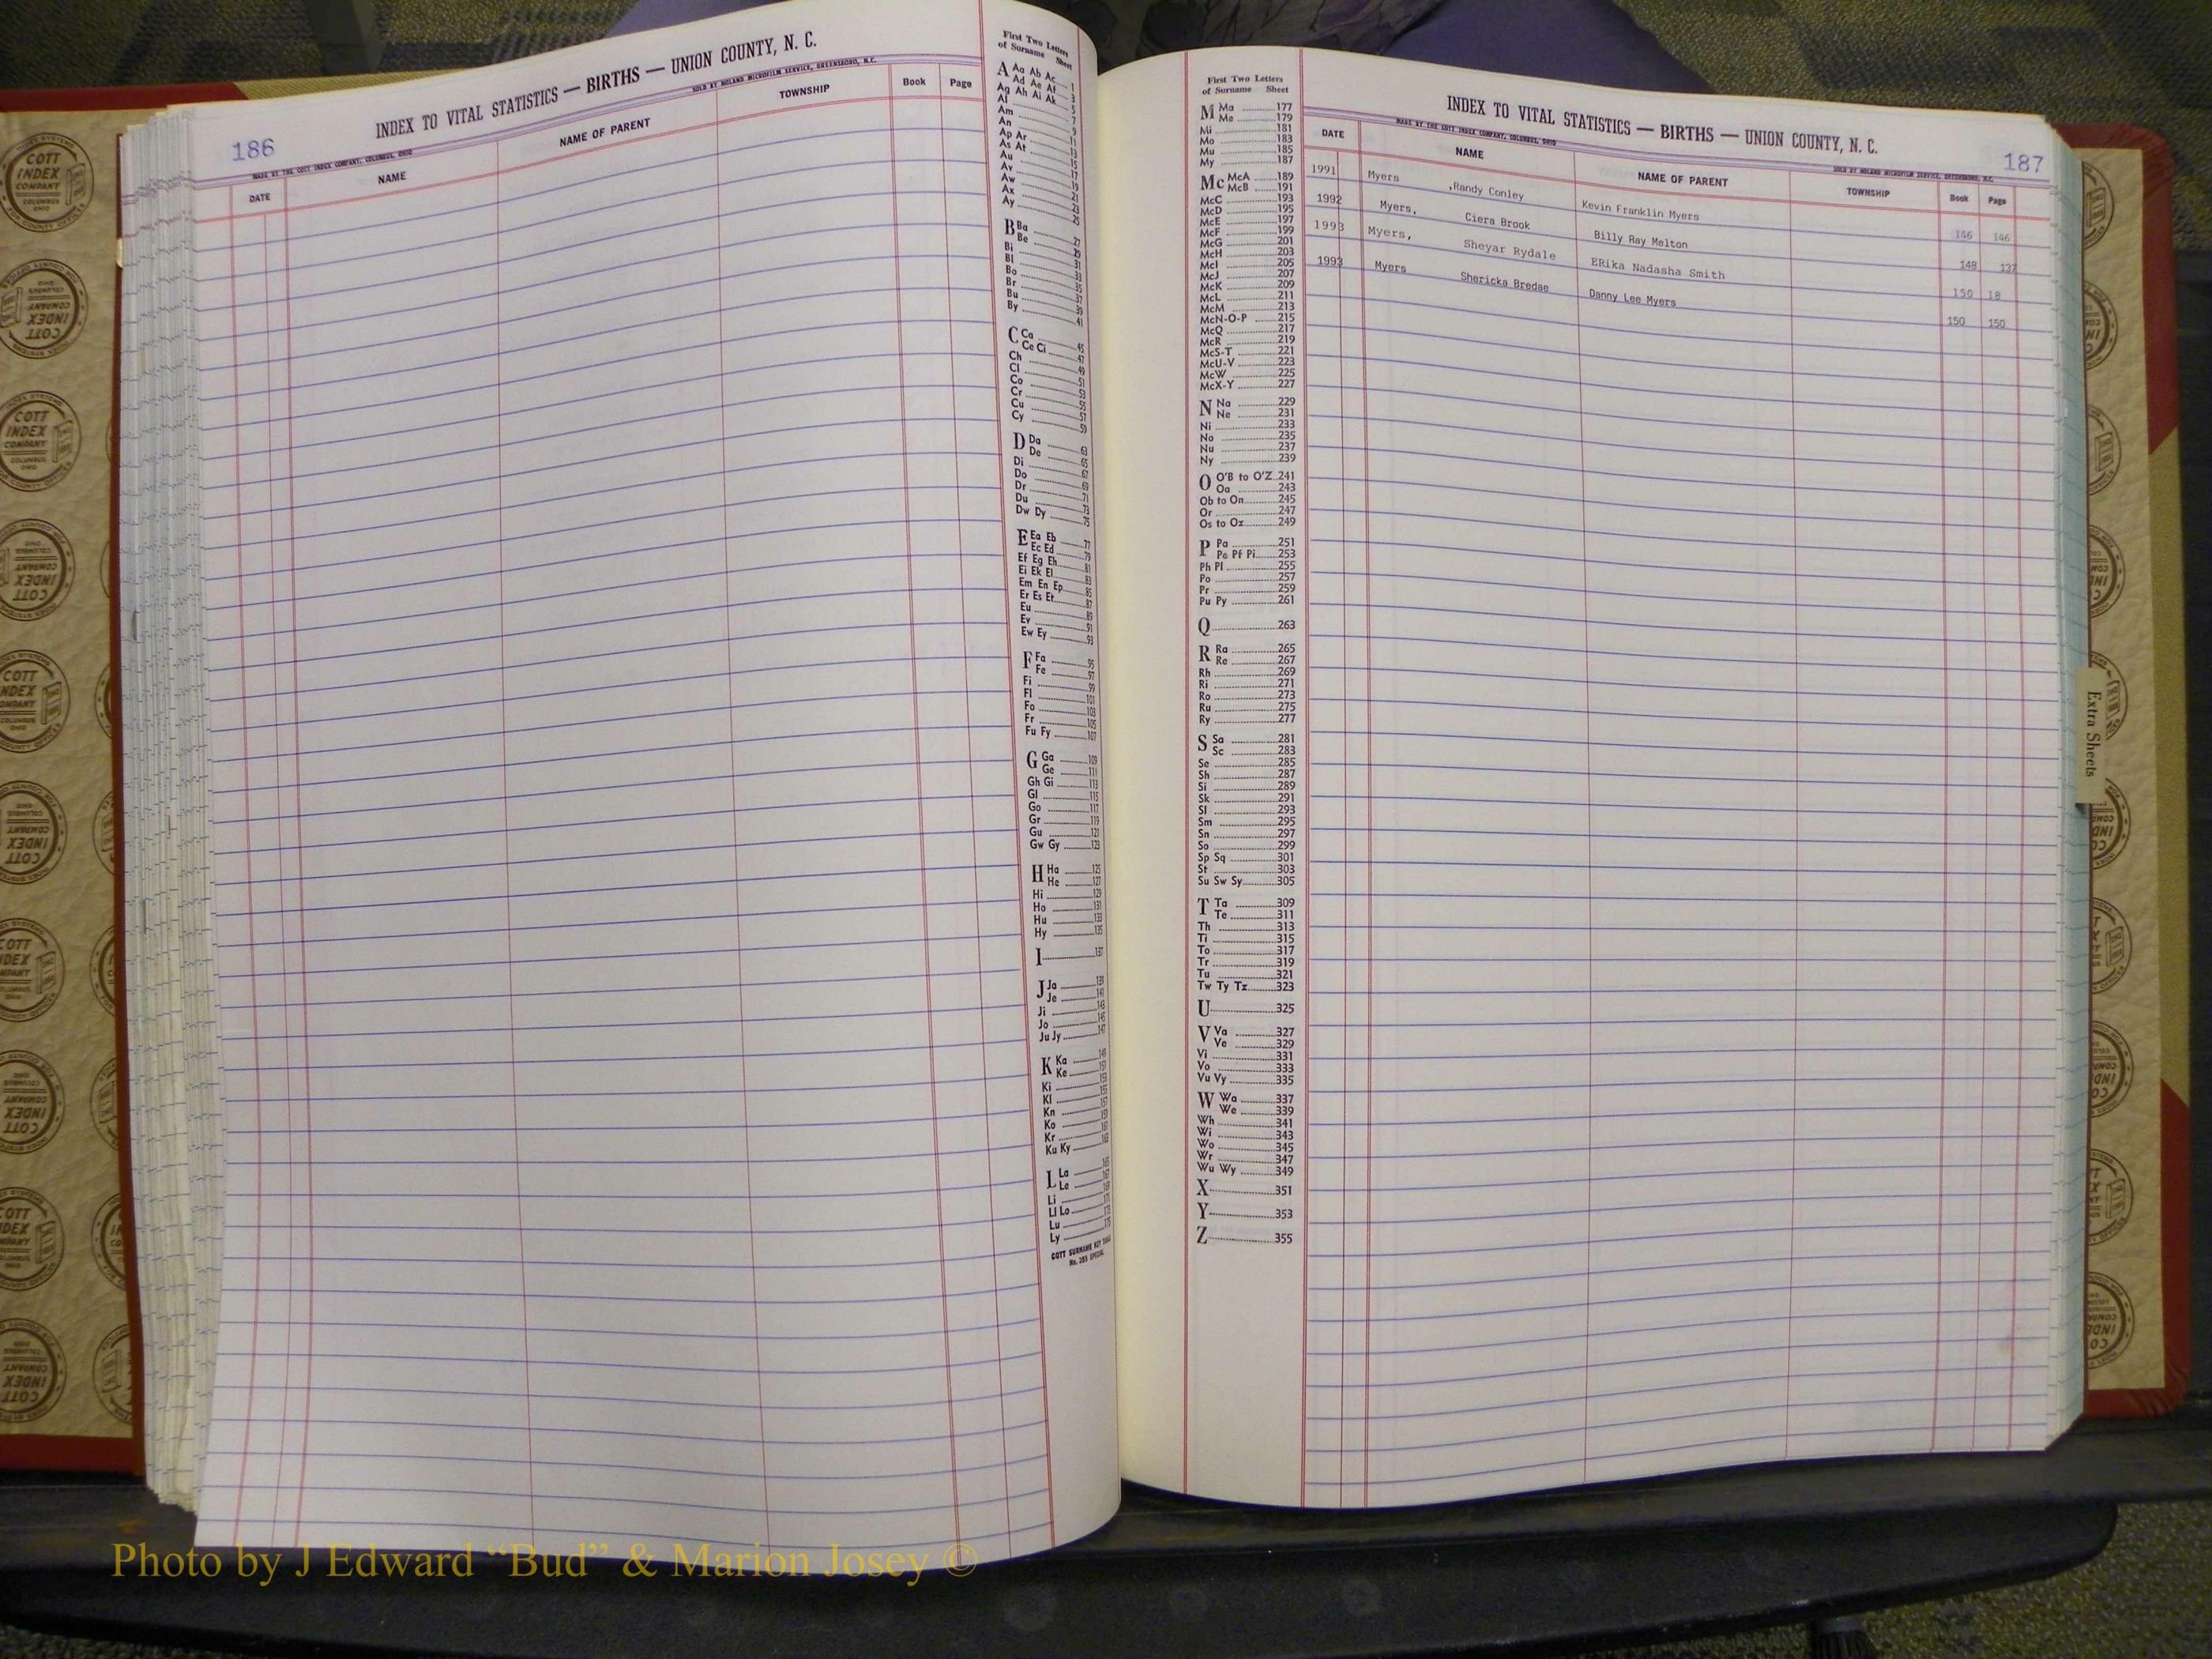 186
INDEX TO VITAL STATISTICS — BIRTHS — UNION COUNTY, N. C.
MADE BY THE COTT INDEX COMPANY, COLUMBUS, OHIO
SOLD BY NOLAND MICROFILM SERVICE, GREENSBORO, N.C.
DATE NAME NAME OF PARENT TOWNSHIP Book Page
First Two Letters
of Surname Sheet
A Aa Ab Ac 1
Ad Ae Af 3
Ag Ah Ai Ak 5
Al 7
Am 9
An 11
Ap Ar 13
As At 15
Au 17
Av 19
Aw 21
Ax 23
Ay 25
B Ba 27
Be 29
Bi 31
Bl 33
Bo 35
Br 37
Bu 39
By 41
C Ca 45
Ce Ci 47
Ch 49
Cl 51
Co 53
Cr 55
Cu 57
Cy 59
D Da 63
De 65
Di 67
Do 69
Dr 71
Du 73
Dw Dy 75
E Ea Eb 77
Ec Ed 79
Ef Eg Eh 81
Ei Ek El 83
Em En Ep 85
Er Es Et 87
Eu 89
Ev 91
Ew Ey 93
F Fa 95
Fe 97
Fi 99
Fl 101
Fo 103
Fr 105
Fu Fy 107
G Ga 109
Ge 111
Gh Gi 113
Gl 115
Go 117
Gr 119
Gu 121
Gw Gy 123
H Ha 125
He 127
Hi 129
Ho 131
Hu 133
Hy 135
I 137
J Ja 139
Je 141
Ji 143
Jo 145
Ju Jy 147
K Ka 149
Ke 151
Ki 153
Kl 155
Kn 157
Ko 159
Kr 161
Ku Ky 163
L La 165
Le
Li
Ll Lo
Lu
Ly
COTT SURNAME KEY TABLE
No. 385 SPECIAL
First Two Letters
of Surname Sheet
M Ma 177
Me 179
Mi 181
Mo 183
Mu 185
My 187
Mc McA 189
McB 191
McC 193
McD 195
McE 197
McF 199
McG 201
McH 203
McI 205
McJ 207
McK 209
McL 211
McM 213
McN-O-P 215
McQ 217
McR 219
McS-T 221
McU-V 223
McW 225
McX-Y 227
N Na 229
Ne 231
Ni 233
No 235
Nu 237
Ny 239
O O'B to O'Z 241
Oa 243
Ob to On 245
Or 247
Os to Oz 249
P Pa 251
Pe Pf Pi 253
Ph Pl 255
Po 257
Pr 259
Pu Py 261
Q 263
R Ra 265
Re 267
Rh 269
Ri 271
Ro 273
Ru 275
Ry 277
S Sa 281
Sc 283
Se 285
Sh 287
Si 289
Sk 291
Sl 293
Sm 295
Sn 297
So 299
Sp Sq 301
St 303
Su Sw Sy 305
T Ta 309
Te 311
Th 313
Ti 315
To 317
Tr 319
Tu 321
Tw Ty Tz 323
U 325
V Va 327
Ve 329
Vi 331
Vo 333
Vu Vy 335
W Wa 337
We 339
Wh 341
Wi 343
Wo 345
Wr 347
Wu Wy 349
X 351
Y 353
Z 355
INDEX TO VITAL STATISTICS — BIRTHS — UNION COUNTY, N. C.
187
MADE BY THE COTT INDEX COMPANY, COLUMBUS, OHIO
SOLD BY NOLAND MICROFILM SERVICE, GREENSBORO, N.C.
DATE NAME NAME OF PARENT TOWNSHIP Book Page
1991 Myers ,Randy Conley Kevin Franklin Myers 146 146
1992 Myers, Ciera Brook Billy Ray Melton 148 137
1993 Myers, Sheyar Rydale ERika Nadasha Smith 150 18
1993 Myers Shericka Bredae Danny Lee Myers 150 150
Extra Sheets
COTT
INDEX
COMPANY
COLUMBUS
OHIO
Photo by J Edward “Bud” & Marion Josey ©